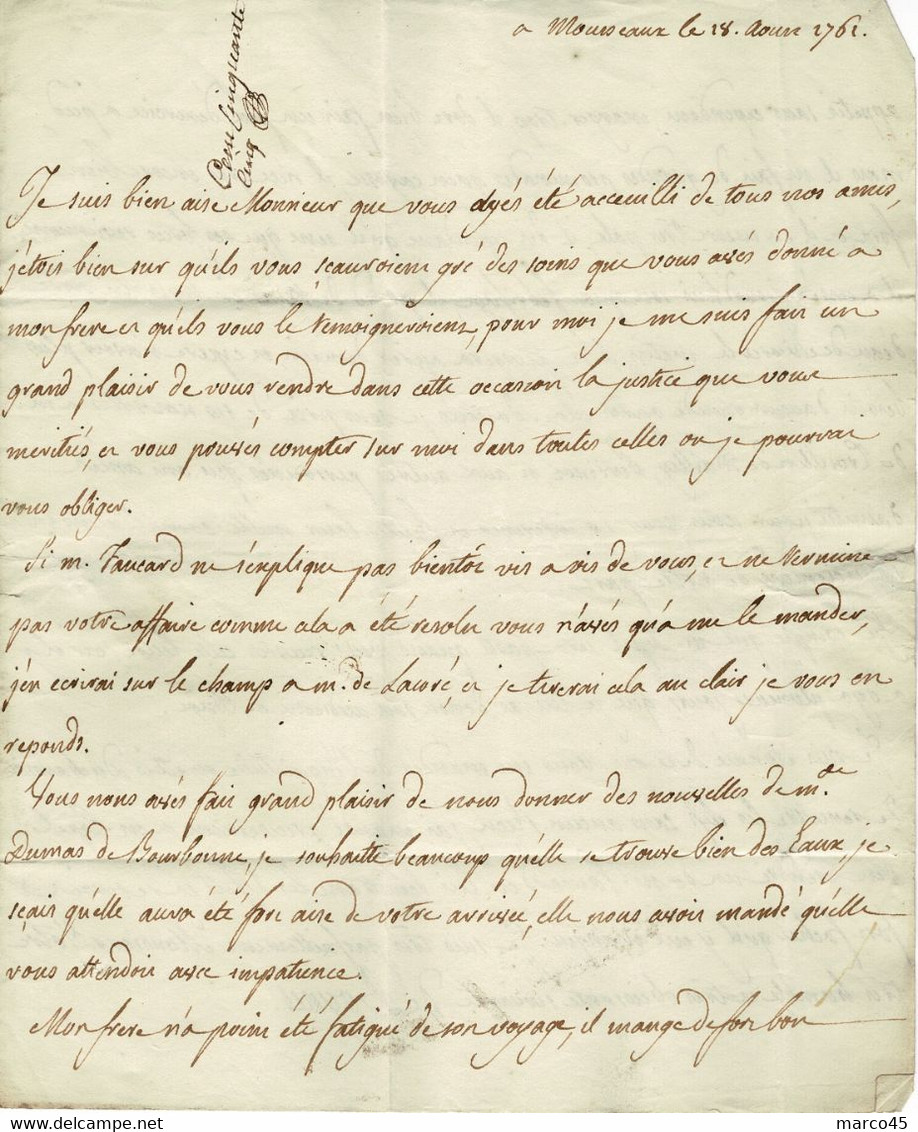 a Mousseaux le 18. Aoust 1761.
Cent Cinquante
Cinq
Je suis bien aise Monsieur que vous ayés été acceuilli de tous nos amis,
j'étois bien sur qu'ils vous sçauroient gré des soins que vous avés donné a
mon frere et qu'ils vous le temoigneroient, pour moi je me suis fait un
grand plaisir de vous rendre dans cette occasion la justice que vous
merités, et vous pouvés compter sur moi dans toutes celles ou je pourrai
vous obliger.
Si m. Faucard ne s'explique pas bientôt vis a vis de vous, et ne termine
pas votre affaire comme cela a été resolu vous n'avés qu'a me le mander,
j'en ecrirai sur le champ a m. de Lacoré, et je tirerai cela au clair je vous en
reponds.
Vous nous avés fait grand plaisir de nous donner des nouvelles de mde
Dumas de Bourbonne, je souhaitte beaucoup qu'elle se trouve bien des Eaux, je
sçais qu'elle aura été fort aise de votre arrivée, elle nous avoit mandé qu'elle
vous attendoit avec impatience.
Mon frere n'a point été fatigué de son voyage, il mange de fort bon
marco45